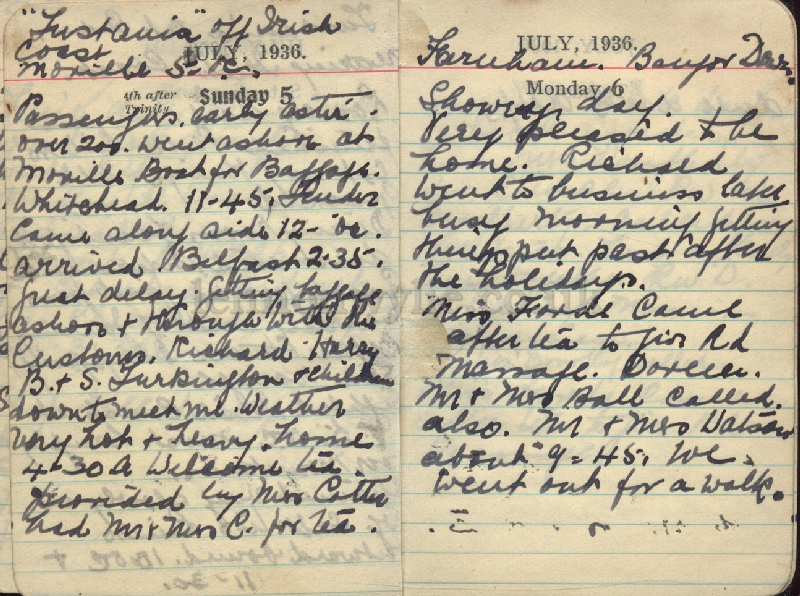 "Lustania" off Irish
Coast
JULY, 1936.
Moville S. R.
4th after
Trinity
Sunday 5
Passengers, early astir.
over 200. went ashore at
Moville Boat for Baggage.
Whitehead. 11-45, Tender
Came along side 12- oc.
arrived. Belfast 2-35.
Great delay. getting baggage
ashore & through with the
Customs. Richard Harry
B. & S. Turkington & children
down to meet me. Weather
very hot & heavy. home
4-30 A Welcome tea.
provided by Miss Cotter
had Mr & Mrs C. for tea.
JULY, 1936.
Farnham. Bangor Down.
Monday 6
Showery day.
Very pleased to be
home. Richard
went to business later
busy Morning getting
things put past after
the holidays.
Miss Forde Came
after tea to give Rd
Massage. Doreen.
Mr & Mrs Ball called.
also. Mr & Mrs Watson
about 9=45, We
went out for a walk.